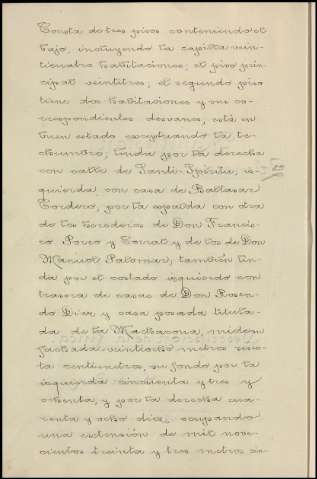 Consta de tres pisos conteniendo el
bajo, incluyendo la capilla vein-
ticuatro habitaciones; el piso prin-
cipal veintitres; el segundo piso
tiene dos habitaciones y su co-
rrespondiente desvanes; está en
buen estado exceptuando la te-
chumbre; linda por la derecha
con calle de Santi-Spiritu, iz-
quierda con casa de Baltasar
Cordero, por la espalda con otra
de los herederos de Don Francis-
co Porro y Corral y de los de Don
Manuel Palomar; también lin-
da por el costado izquierdo con
trasera de casas de Don Rosen-
do Diez y casa posada titula-
da de la Machacona, miden su
fachada veintiocho metros seten-
ta centimetros, su fondo por la
izquierda cincuenta y tres y
ochenta, y por la derecha cua-
renta y ocho diez ocupando
una extensión de mil nove-
cientos treinta y tres metros se-